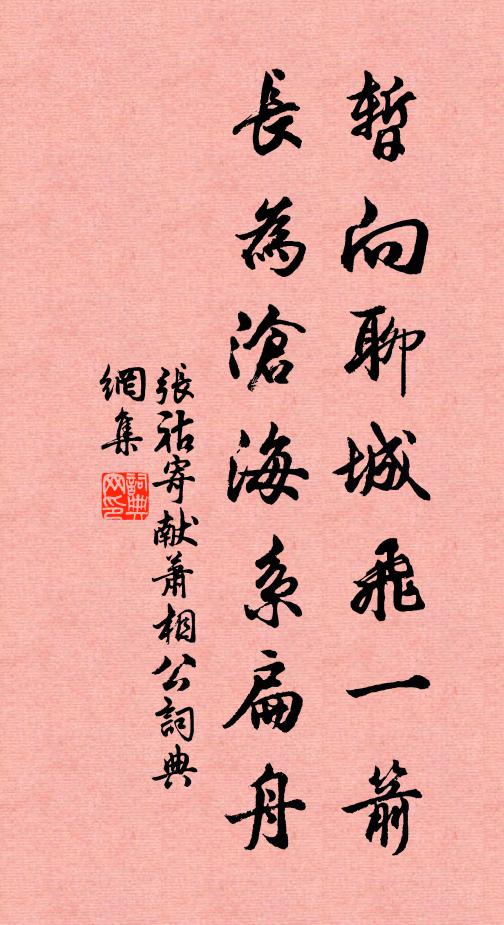 暫向聊城飛一箭
長為滄海系扁舟
張祜寄献蕭相公詞典
網集
詞典
网印